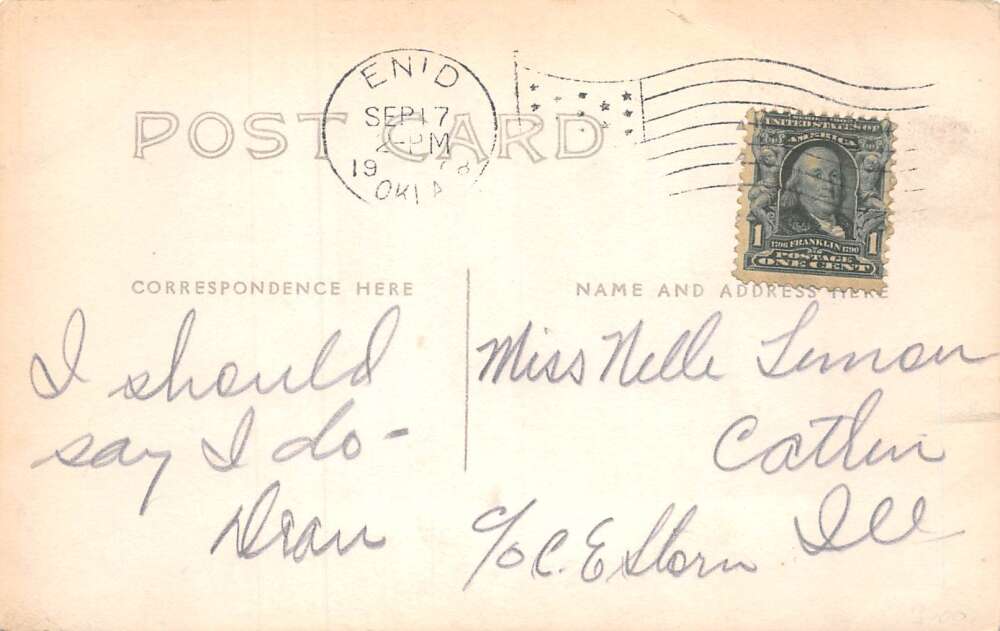 ENID
SEP 17
2-PM
19 08
OKLA
POST CARD
UNITED STATES OF
AMERICA
1 1
1706 FRANKLIN 1790
POSTAGE
ONE CENT
CORRESPONDENCE HERE
NAME AND ADDRESS HERE
I should
say I do-
Miss Nelle Lemon
Catlin
Ill
c/o C. E